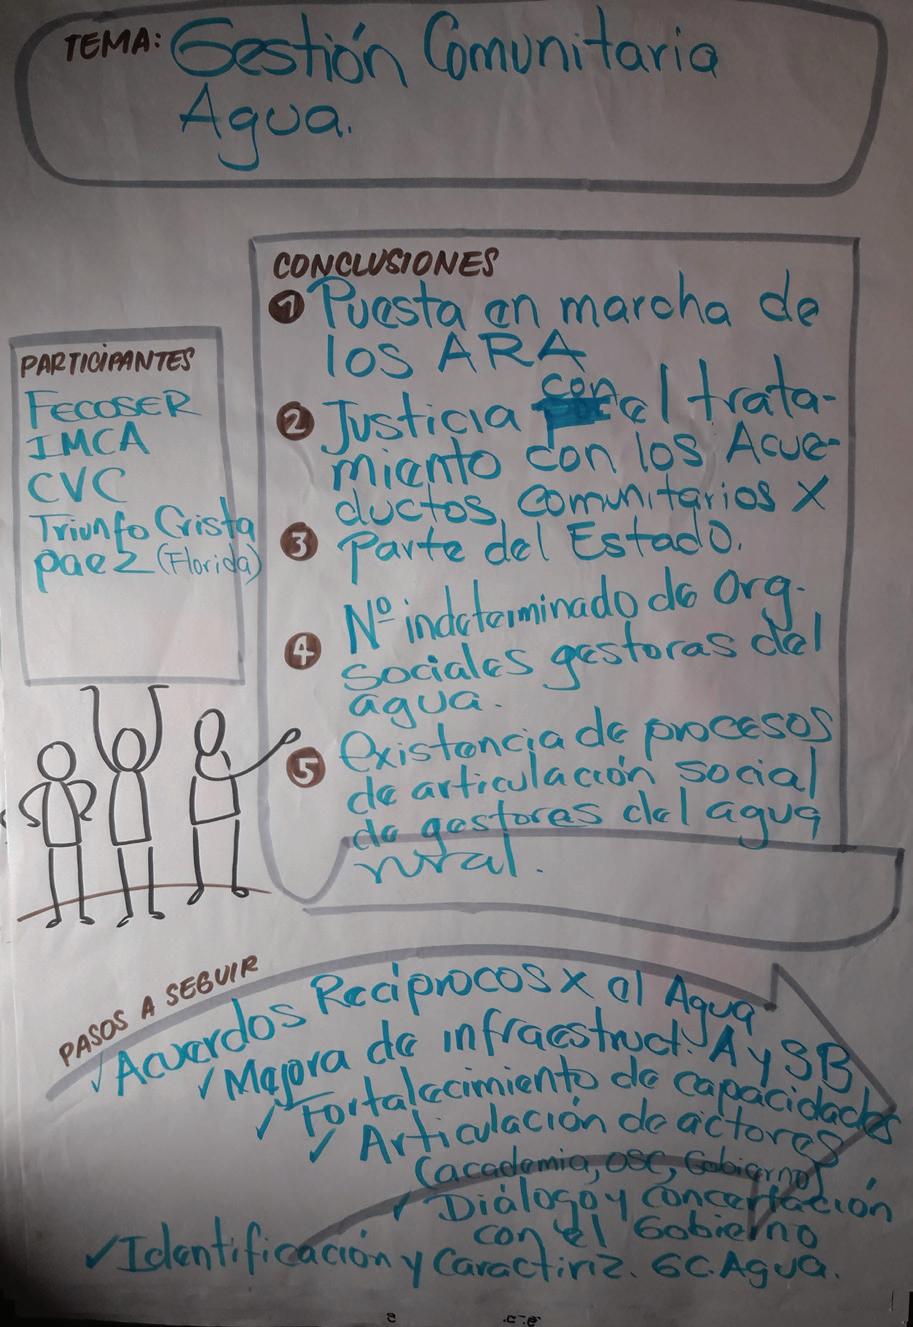 TEMA: Gestión Comunitaria
Agua.
PARTICIPANTES
FECOSER
IMCA
CVC
Triunfo Crista
paez (Florida)
CONCLUSIONES
1 Puesta en marcha de
los ARA
2 Justicia con el trata-
miento con los Acue-
ductos comunitarios X
3 parte del Estado.
Nº indeterminado de Org.
4 sociales gestoras del
agua.
existencia de procesos
5 de articulación social
de gestores del agua
rural.
PASOS A SEGUIR
✓ Acuerdos Recíprocos x el Agua
✓ Mejora de infraestruct. A y SB
✓ Fortalecimiento de capacidades
✓ Articulación de actores
(academia, OSC, Gobierno)
✓ Diálogo y concertación
con el Gobierno
✓ Identificación y Caractiriz. GC. Agua.